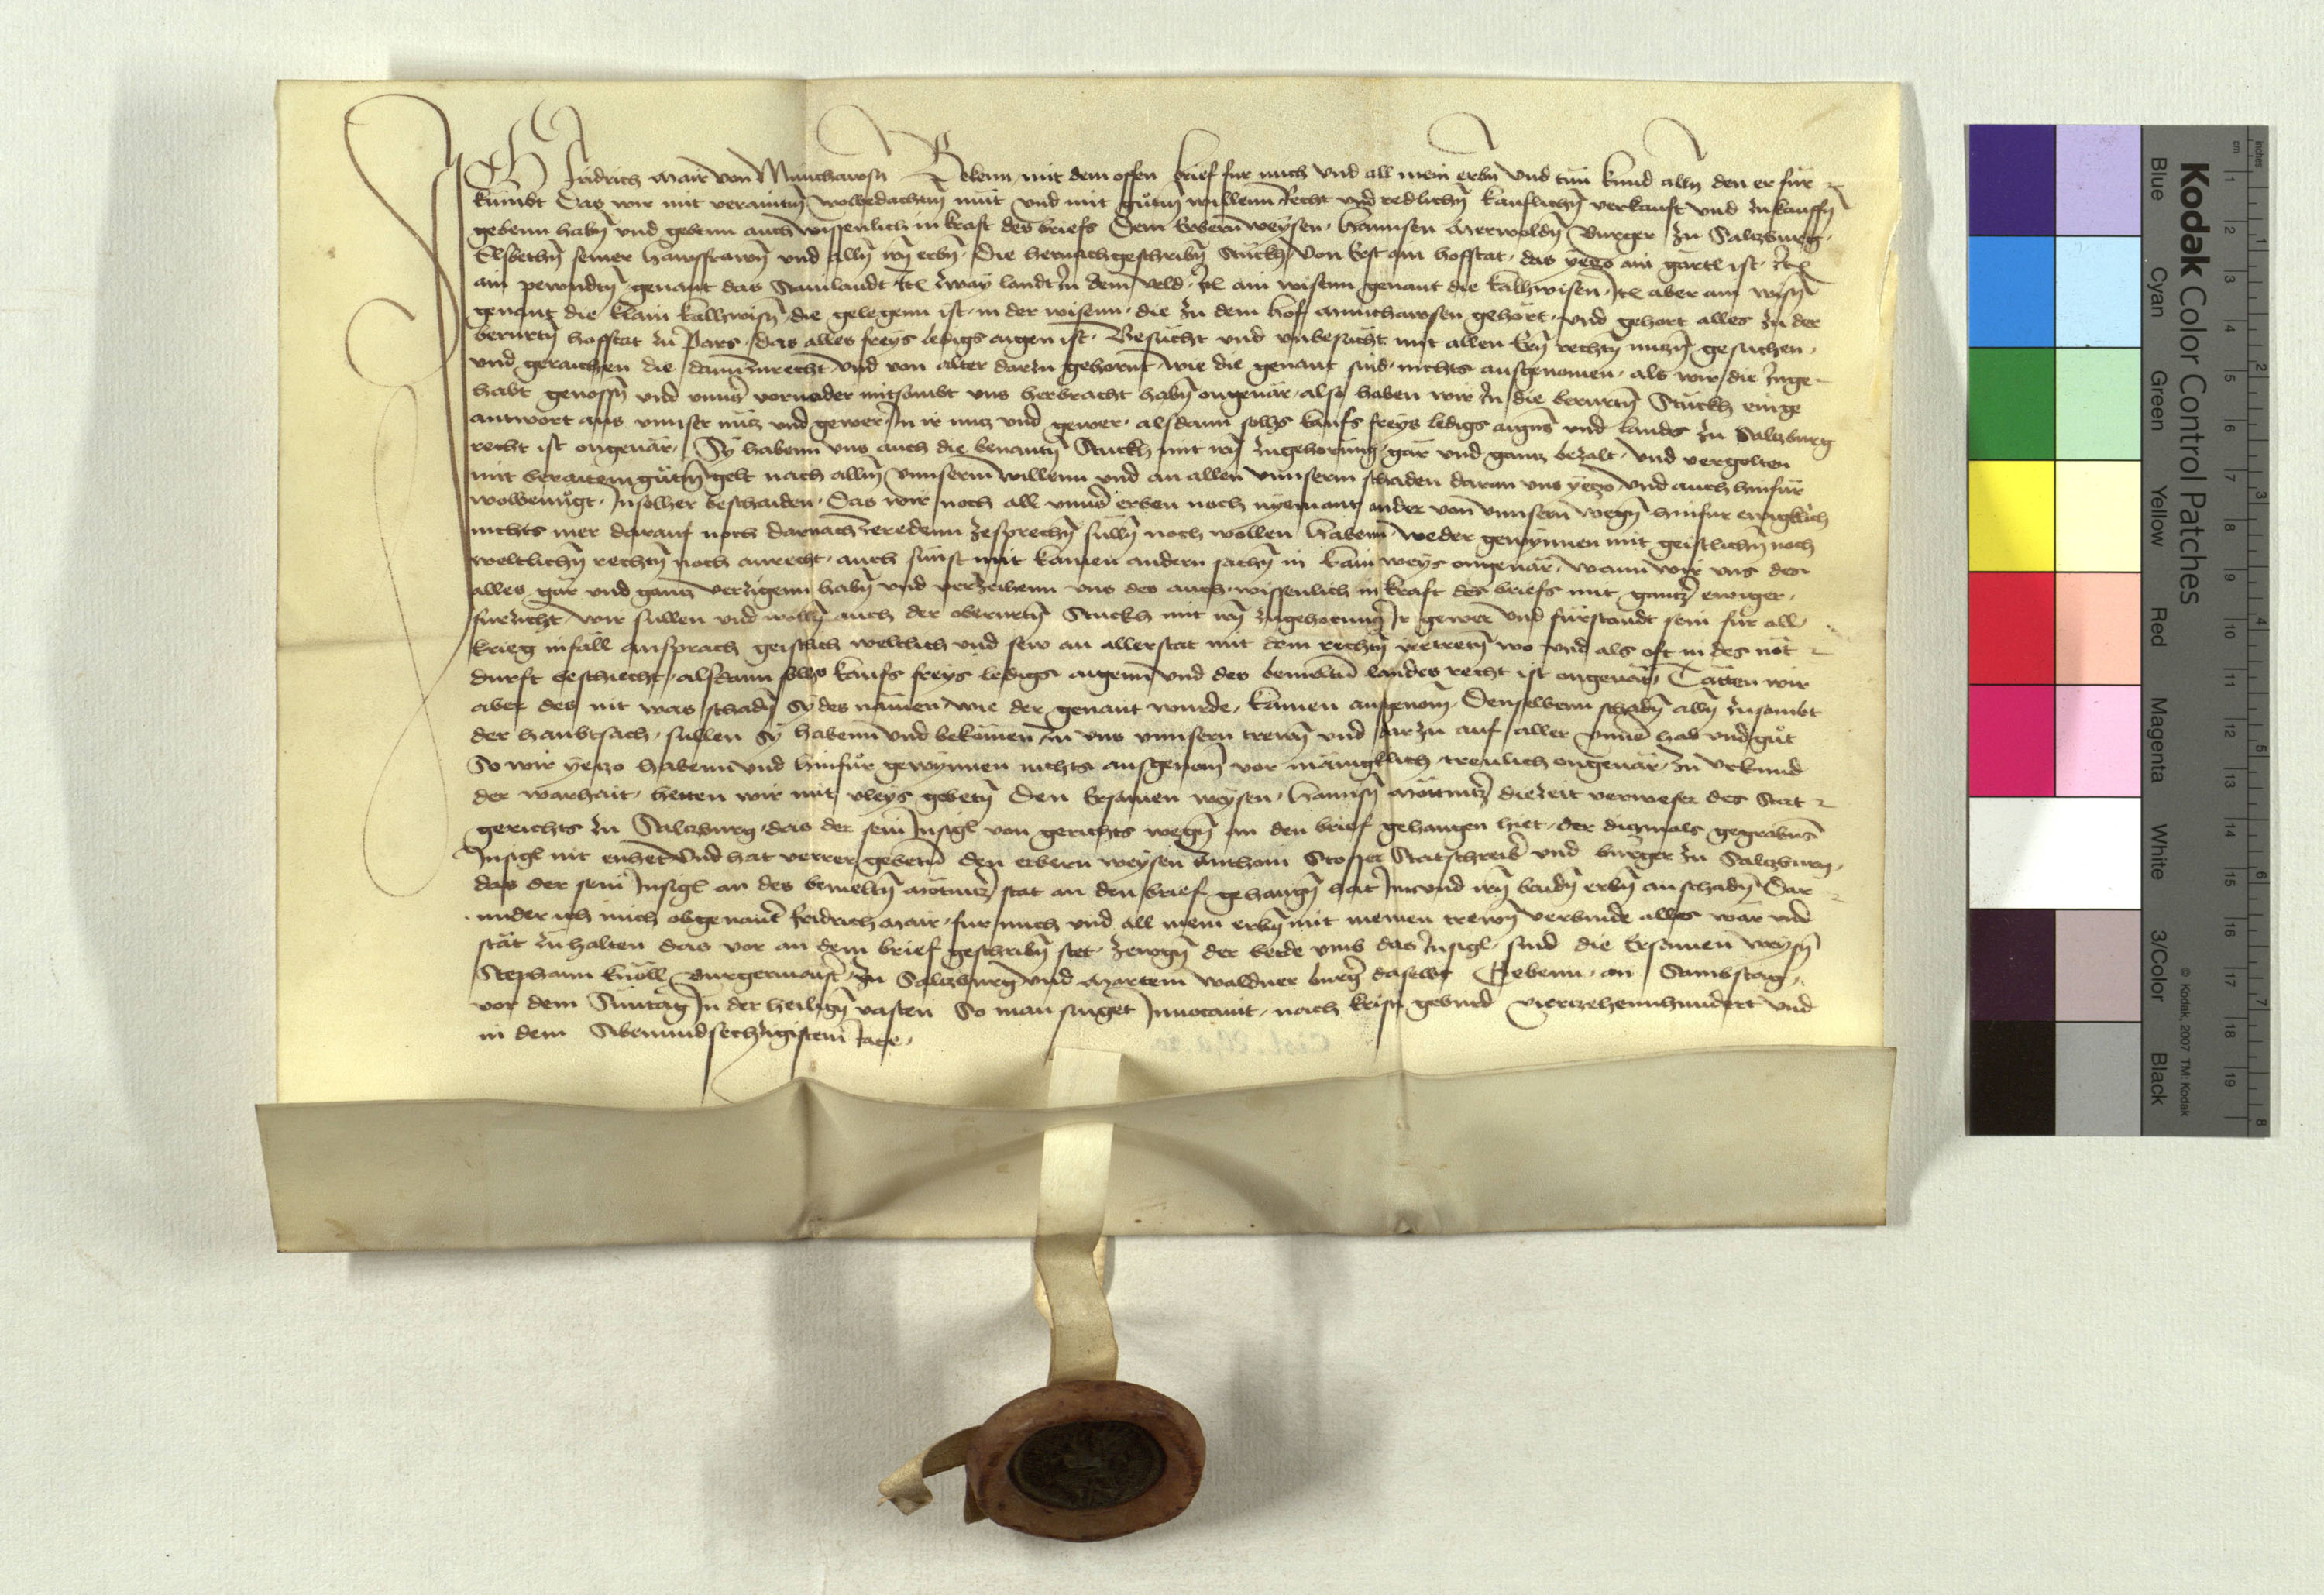 Ich Fridrich Mair von Munchawsn Bekenn mit dem offen brief fur mich und all mein erbn und tun kund alln den er für
kumbt Das wir mit verainttm wolbedachtm mut und mit gutm willenn Recht und redlichn kauflichn verkauft und zukauffn
gebenn habn und gebenn auch wissenlich in kraft des briefs Dem Erbern weysen Hannsen Merwoldn Burger zu Salczburg
Elsbethn seiner hawsfrawn und alln irn erbn Die hernachgeschribn Stuckh Von Erst ain hofstat das yeczo ain gartl ist Itl
ain pewndtn genant das Stainlandt Itl zway landt in dem veld Itl ain wisenn genant die kalhwisen Itl aber ain wisn
genant die klain kalhwisn die gelegenn ist in der wisenn die zu dem hof Munchawsen gehört und gehort alles zu der
berurtn hofstat zu Pars das alles freys ledigs aigen ist Besucht und unbesucht mit allen Ern rechtn nuczn gesuchen
und geraichen die dann zurecht und von alter darzu gehornt wie die genant sind nichts ausgenomen als wir die Inge
habt genossn und unnser vorvoder mitsambt uns herbracht habn ongeuär also haben wir In die berurtn Stuckh einge
antwort aus unnser nucz und gewer In ir nucz und gewer alsdann solhs kaufs freys ledigs aigens und lands zu Salczburg
recht ist ongeuär Sy habenn uns auch die benantn Stuckh mit irn zugehorung gar und gancz bezalt und vergolten
mit beraitem gutm gelt nach allm unnserm willenn und an allen unnserm schaden daran uns yeczo und auch hinfür
wolbenugt Insolher beschaiden Das wir noch all unnser erben noch nyemant ander von unnsern wegn hinfur ewigklich
nichts mer darauf noch darnach zeredenn zesprechn sulln noch wollen habenn weder gewynnen mit geistlichn noch
weltlichn rechtn noch anrecht auch sunst mit kainen andern sachn in kain weys ongeuär wann wir uns des
alles gar und gancz verzigenn habn und verzeihenn uns des auch wissenlich in kraft des briefs mit ganczer ewiger
furzicht wir sullen und wolln auch der oberurtn Stuckh mit irn zugehorung Ir gewer und fürstandt sein für all
krieg infäll ansprach geistlich weltlich und sew an allerstat mit dem rechtn vertretn wo und als oft in des not
durft beschiecht alsdann solhs kaufs freys ledigs aigenn und des bemeltn landes recht ist ongeuär Tätten wir
aber des nit was schadn Sy des namen wie der genant wurde kainen ausgenomen Denselbenn schadn alln zusambt
der haubtsach sullen Sy habenn und bekomen zu uns unnsern trewn und darzu auf aller unnser hab und gut
So wir yeczo habenn und hinfur gewynnen nichts ausgenomen vor mänigklich treulich ongeuär Zu Urkund
der warhait hetten wir mit vleys gebetn Den Ersamen weysen Hannsn diezeit verweser des Stat
gerichts zu Salczburg das der sein Insigl von gerichts wegn an den brief gehangen hiet der diczmals gegrabens
Insigl nit enhet Und hat verrer gebetn den erbern weysen Anthoni Statschreiber und burger zu Salczburg
das der sein Insigl an des bemeltn stat an den brief gehangn hat Im und irn baidn erbn an schadn Dar
under ich mich obgenanter Fridrich Mair fur mich und all mein erbn mit meinen trewn verbinde alles war und
stät zu halten das vor an dem brief geschribn stet Zewgn der bette umb das Insigl sind die Ersamen weysn
Stephann Knöll Burgermaister zu Salczburg und Martein Waldner burger daselbs Gebenn an Sambstag
vor dem Sunntag In der heilign vasten So man singet Innocavit nach kristi geburd viertzehennhundert und
in dem Sibenundsechzigistem Jare
Kodak Color Control Patches
Blue Cyan Green Yellow Red Magenta White 3/Color Black
© Kodak, 2007 TM: Kodak
inches 1 2 3 4 5 6 7 8
cm 1 2 3 4 5 6 7 8 9 10 11 12 13 14 15 16 17 18 19